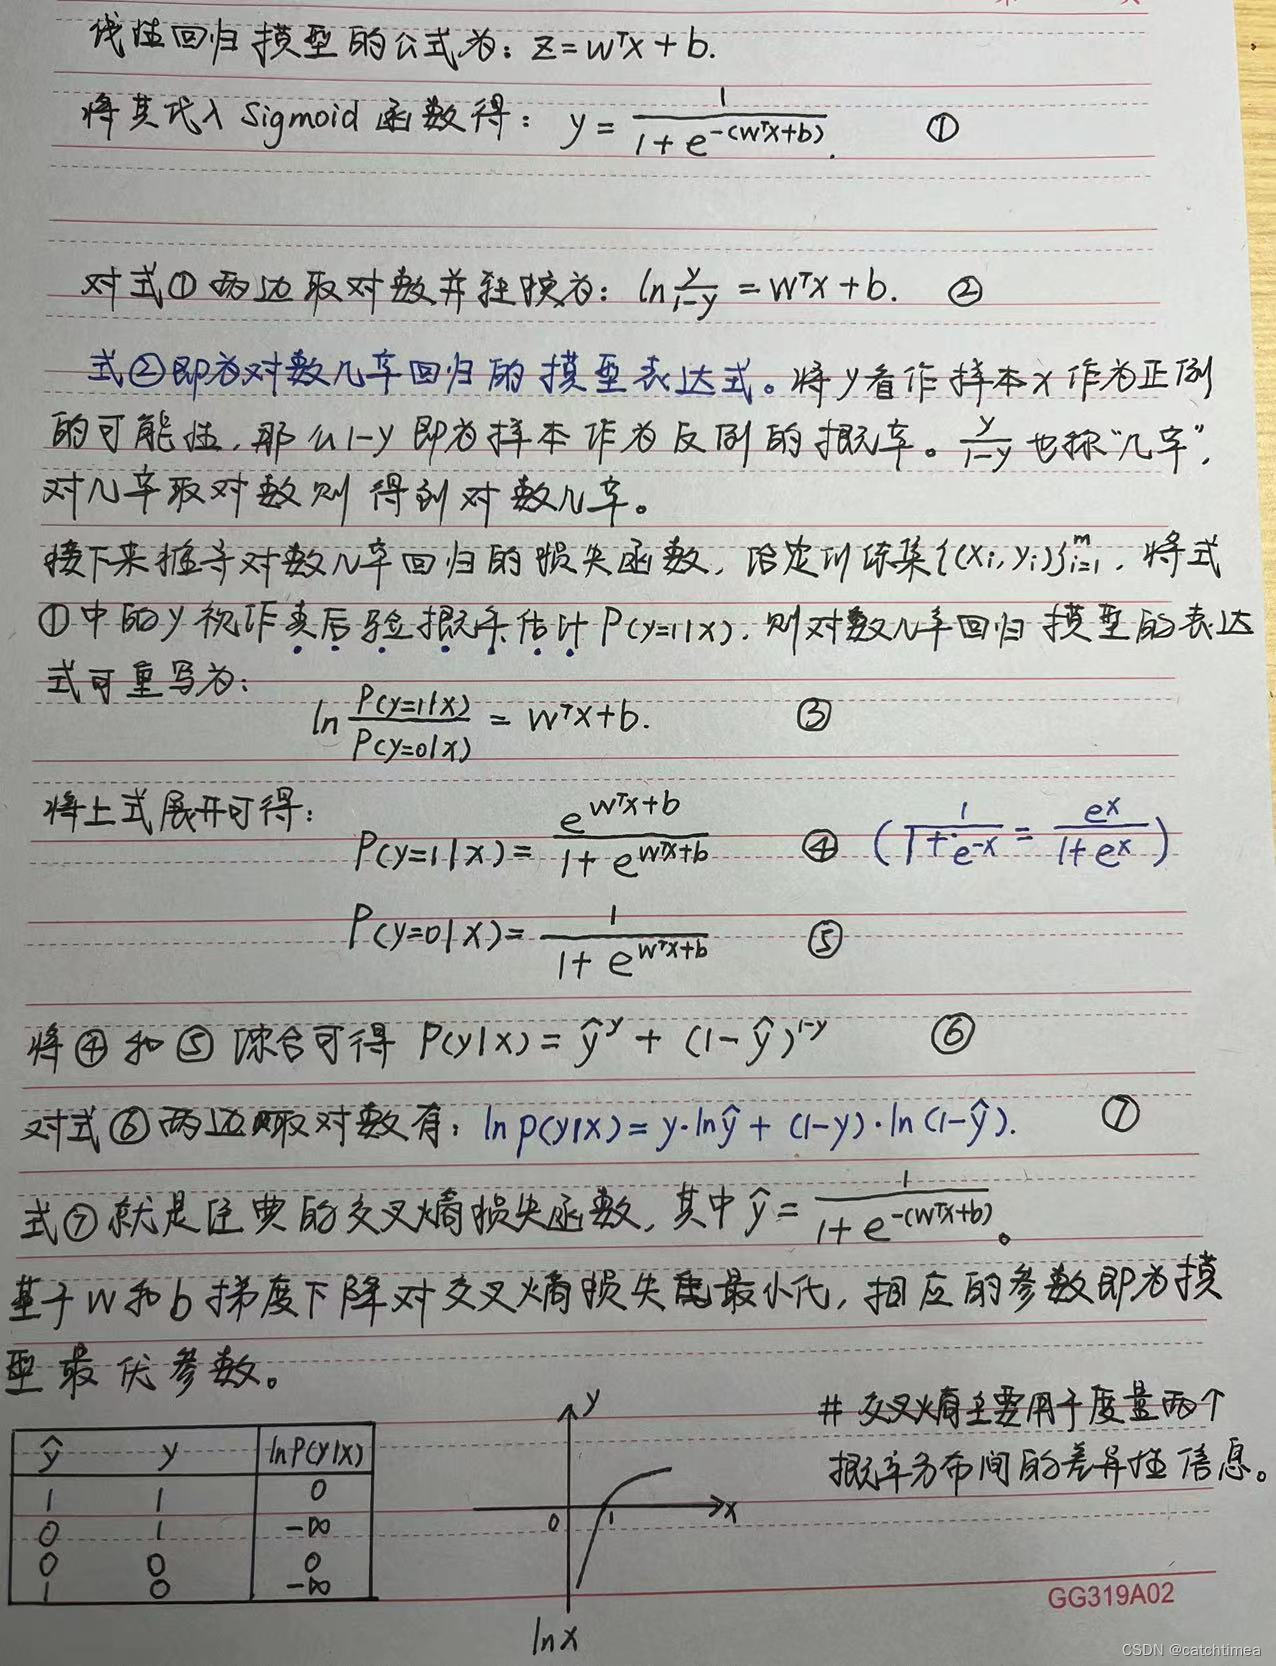 线性回归模型的公式为：z=wᵀx+b.
将其代入Sigmoid函数得：y=1/(1+e^{-(wᵀx+b)}). ①
对式①两边取对数并转换为：ln y/(1-y) = wᵀx+b. ②
式②即为对数几率回归的模型表达式。将y看作样本x作为正例
的可能性，那么1-y即为样本作为反例的概率。y/(1-y)也称“几率”，
对几率取对数则得到对数几率。
接下来推导对数几率回归的损失函数，给定训练集{(xi,yi)}_{i=1}^{m}，将式
①中的y视作类后验概率估计P(y=1|x)，则对数几率回归模型的表达
式可重写为：
ln P(y=1|x)/P(y=0|x) = wᵀx+b. ③
将上式展开可得：
P(y=1|x)=e^{wᵀx+b}/(1+e^{wᵀx+b}) ④ (1/(1+e^{-x})=e^{x}/(1+e^{x}))
P(y=0|x)=1/(1+e^{wᵀx+b}) ⑤
将④和⑤综合可得 P(y|x)=ŷ^{y}+(1-ŷ)^{1-y} ⑥
对式⑥两边取对数有：lnP(y|x)=y·lnŷ+(1-y)·ln(1-ŷ). ⑦
式⑦就是经典的交叉熵损失函数，其中ŷ=1/(1+e^{-(wᵀx+b)})。
基于w和b梯度下降对交叉熵损失最小化，相应的参数即为模
型最优参数。
ŷ y lnP(y|x)
1 1 0
0 1 -∞
0 0 0
1 0 -∞
y
0 1 x
lnx
# 交叉熵主要用于度量两个
概率分布间的差异性信息。
GG319A02
CSDN @catchtimea